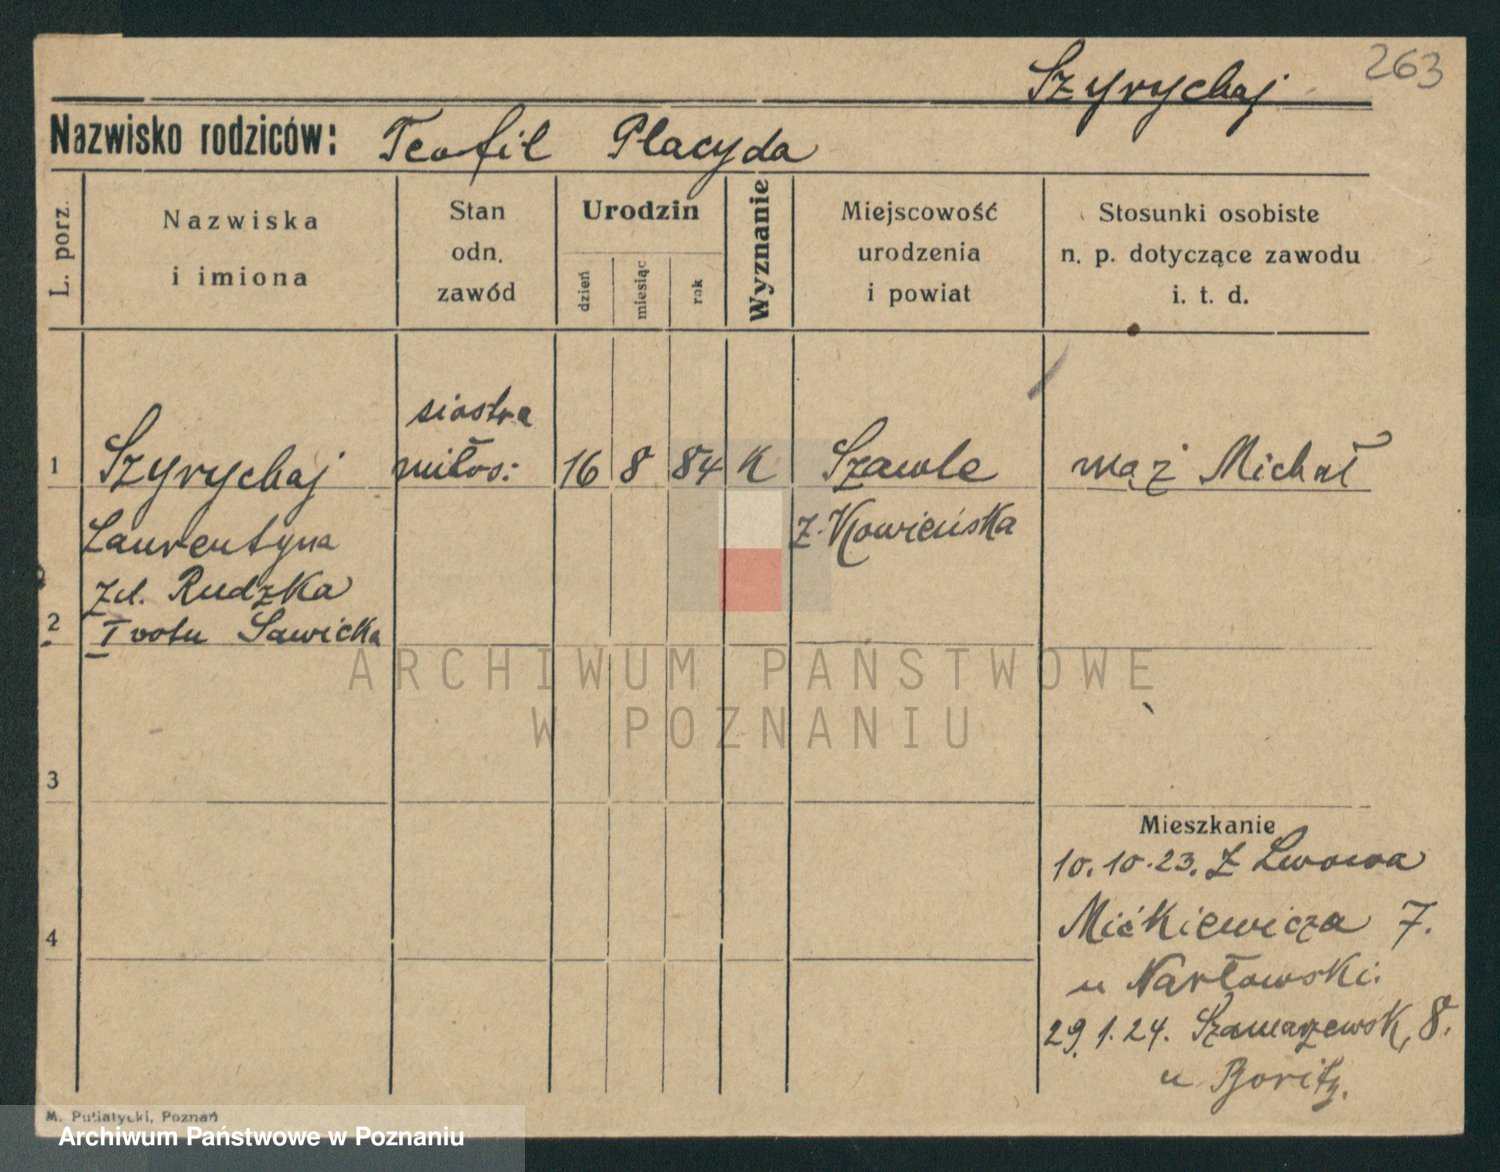 263
Szyrychaj
Nazwisko rodziców: Teofil Placyda
L. porz.
Nazwiska
i imiona
Stan
odn.
zawód
Urodzin
dzień
miesiąc
rok
Wyznanie
Miejscowość
urodzenia
i powiat
Stosunki osobiste
n. p. dotyczące zawodu
i. t. d.
siostra
1 Szyrychaj miłos: 16 8 84 K Szawle mąż Michał
Laurentyna z. Kowieńska
zd. Rudzka
2 I votu Sawicka
ARCHIWUM PAŃSTWOWE
W POZNANIU
3
Mieszkanie
10.10.23. z Lwowa
4 Mićkiewicza 7.
u Narłowski.
29.1.24. Szamarzewsk, 8.
u Boritz.
M. Putiatycki, Poznań
Archiwum Państwowe w Poznaniu